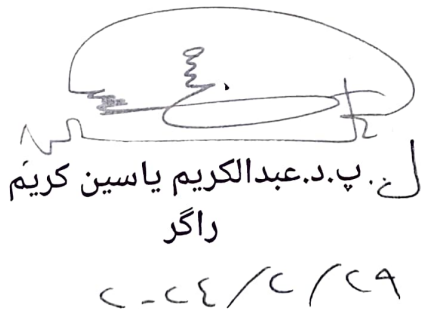 پ.د.عبدالکریم یاسین کریم
راگر
٢٠٢٤/٢/٢٩